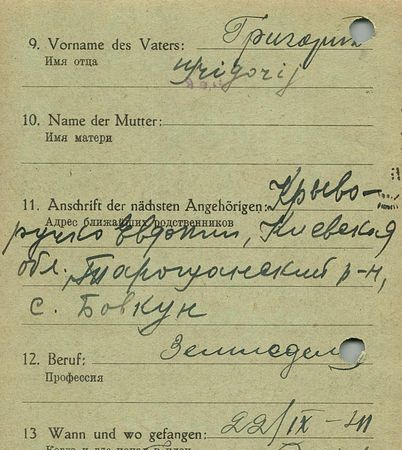 9. Vorname des Vaters: Григорий
Имя отца
Grigorij
10. Name der Mutter:
Имя матери
11. Anschrift der nächsten Angehörigen: Крыво-
Адрес ближайших родственников
ручко Евдокии, Киевская
обл. Таращанский р-н,
с. Бовкун
12. Beruf: Земледел
Профессия
13 Wann und wo gefangen: 22/IX - 41
Когда и где попал в плен